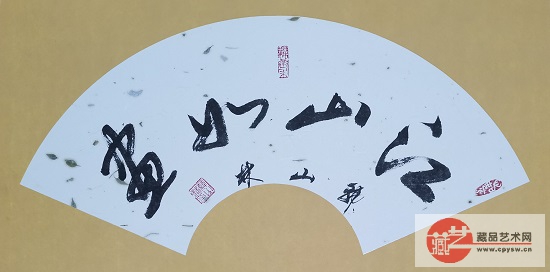 江山如畫
山林
藏艺
藏品艺术网
www.cpysw.cn